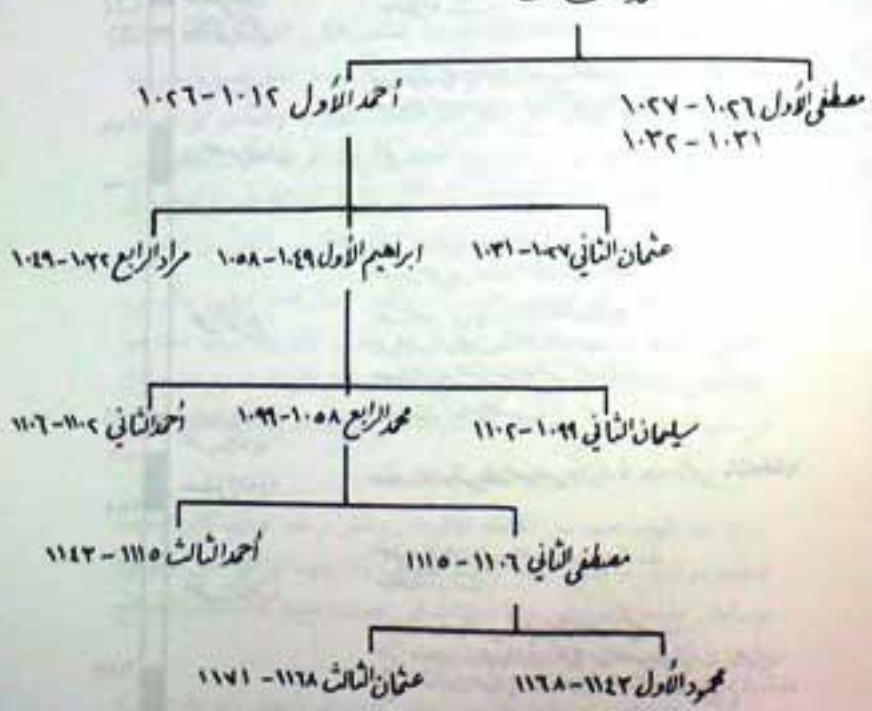 مصطفى الأول ١٠٢٦ - ١٠٢٧
١٠٣١ - ١٠٣٢
أحمد الأول ١٠١٢ - ١٠٢٦
عثمان الثاني ١٠٢٧ - ١٠٣١
ابراهيم الأول ١٠٤٩ - ١٠٥٨
مراد الرابع ١٠٣٢ - ١٠٤٩
سليمان الثاني ١٠٩٩ - ١١٠٢
محمد الرابع ١٠٥٨ - ١٠٩٩
أحمد الثاني ١١٠٢ - ١١٠٦
مصطفى الثاني ١١٠٦ - ١١١٥
أحمد الثالث ١١١٥ - ١١٤٣
محمود الأول ١١٤٣ - ١١٦٨
عثمان الثالث ١١٦٨ - ١١٧١